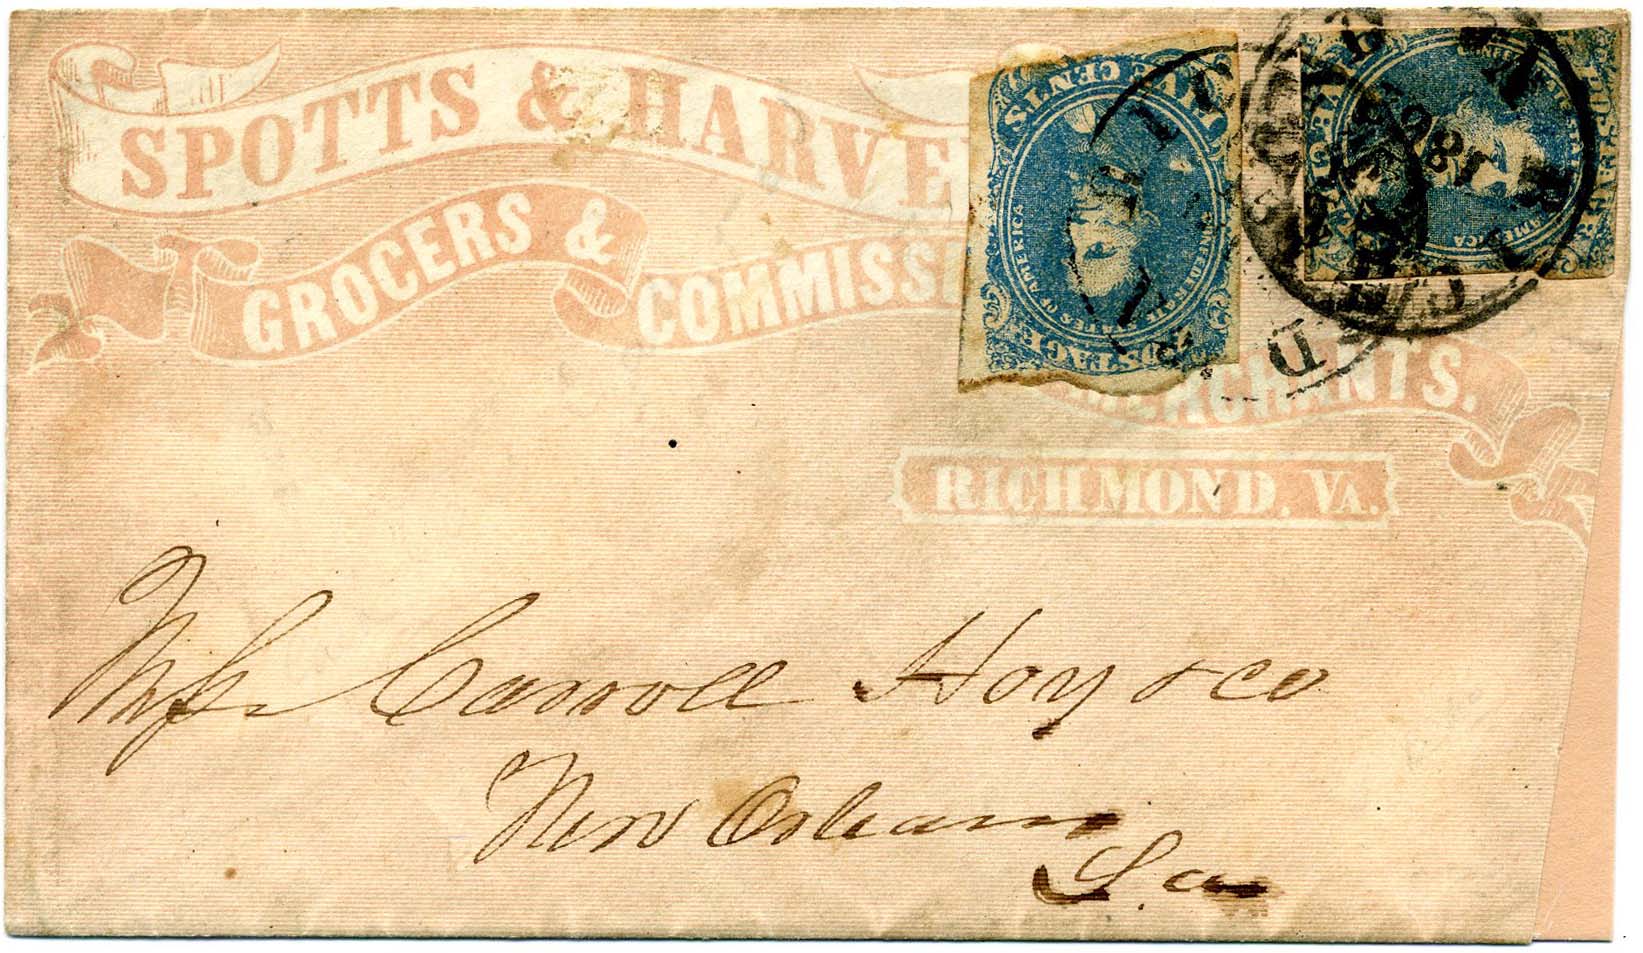 SPOTTS & HARVE
GROCERS & COMMISSI MERCHANTS.
RICHMOND, VA.
FIVE CENTS
CONFEDERATE STATES OF AMERICA
POSTAGE
AMERICA
POSTAGE
1862
Mess Carroll Hoy & co
New Orleans
La